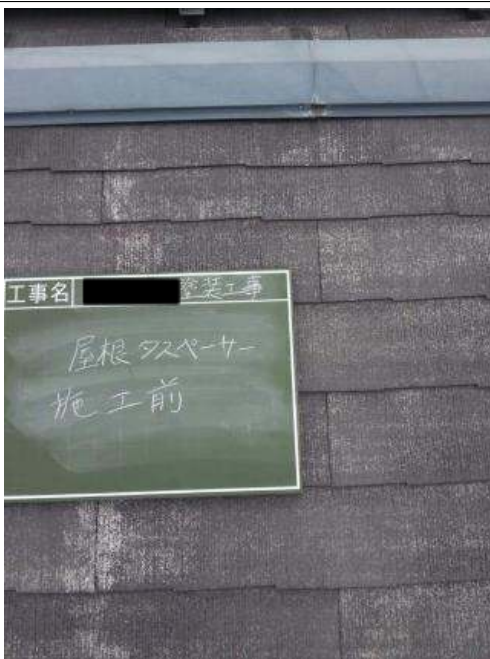 工事名 塗装工事
屋根タスペーサー
施工前